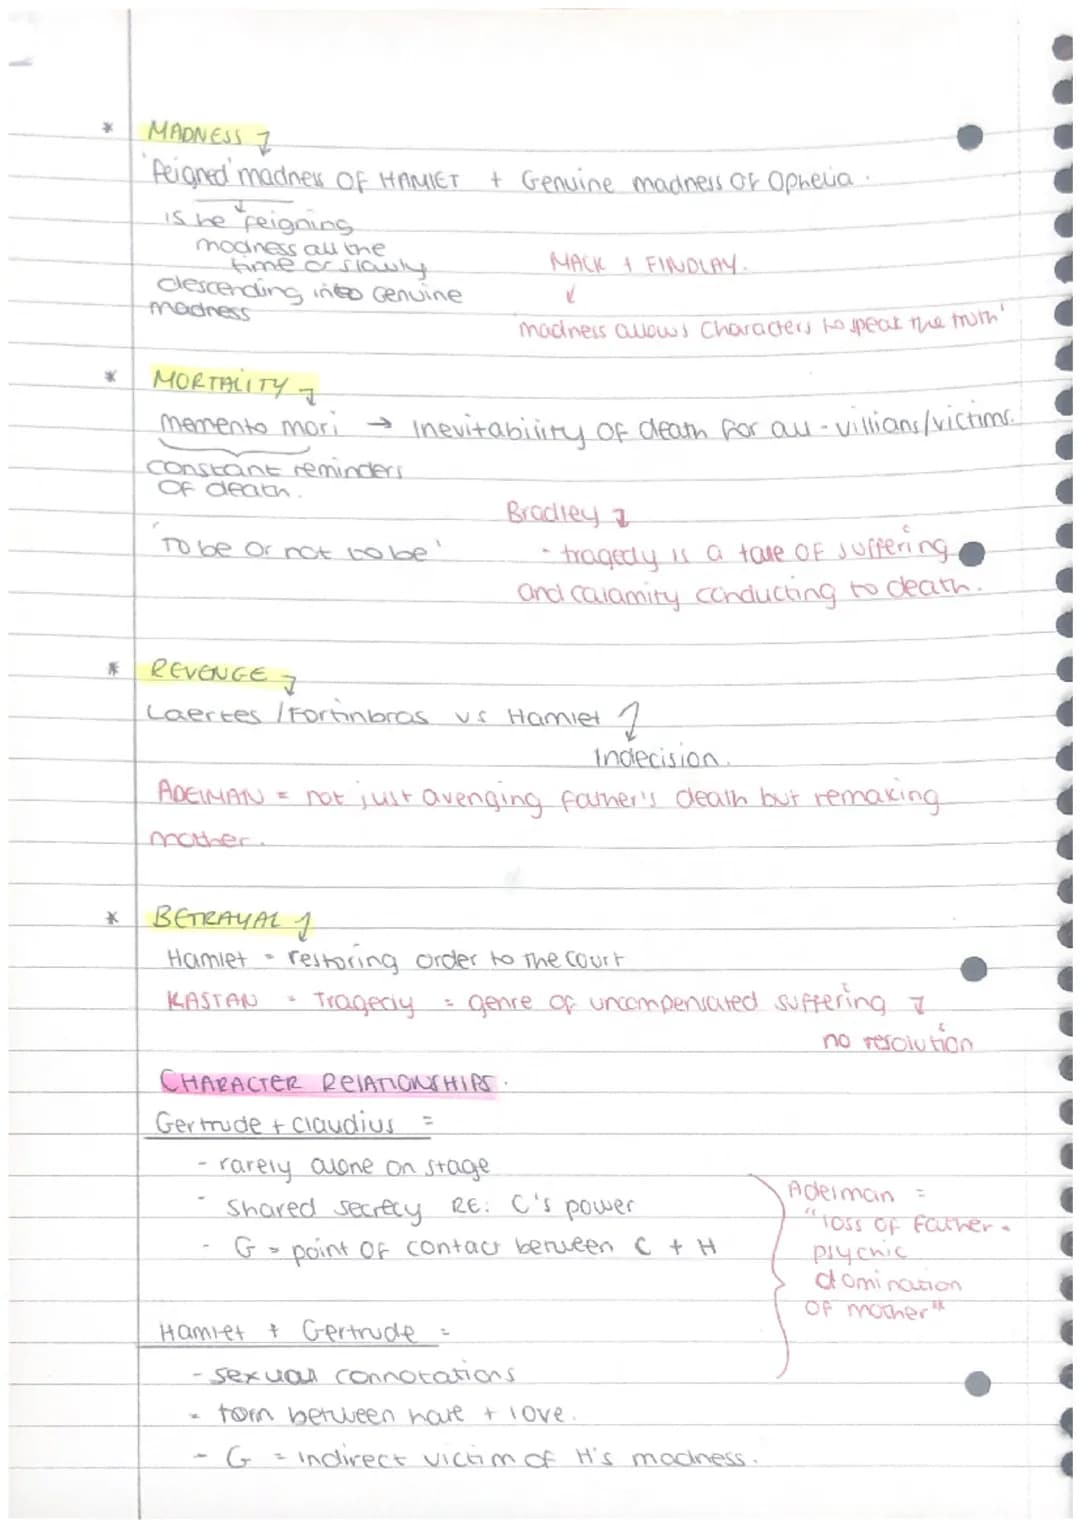 * MADNESS ↴
'feigned' madness OF HAMLET + Genuine madness OF Ophelia.
is he feigning
madness all the
time or slowly
descending into Genuine
madness
MACK + FINDLAY.
↓
'madness allows characters to speak the truth'
* MORTALITY ↴
memento mori → Inevitability OF death for all - villians/victims.
constant reminders
OF death.
'To be or not to be'
Bradley ↴
- tragedy is a tale OF suffering
and calamity conducting to death.
* REVENGE ↴
Laertes / Fortinbras vs Hamlet ↴
Indecision.
ADELMAN = not just avenging father's death but remaking
mother.
* BETRAYAL ↴
Hamlet = restoring order to the court
KASTAN - Tragedy = genre of uncompensated suffering ↴
no resolution
CHARACTER RELATIONSHIPS.
Gertrude + Claudius =
- rarely alone on stage
- shared secrecy RE: C's power
- G = point OF contact between C + H
Adelman =
"loss OF Father =
psychic
domination
OF mother"
Hamlet + Gertrude =
- sexual connotations
- torn between hate + love.
- G = indirect victim of H's madness.